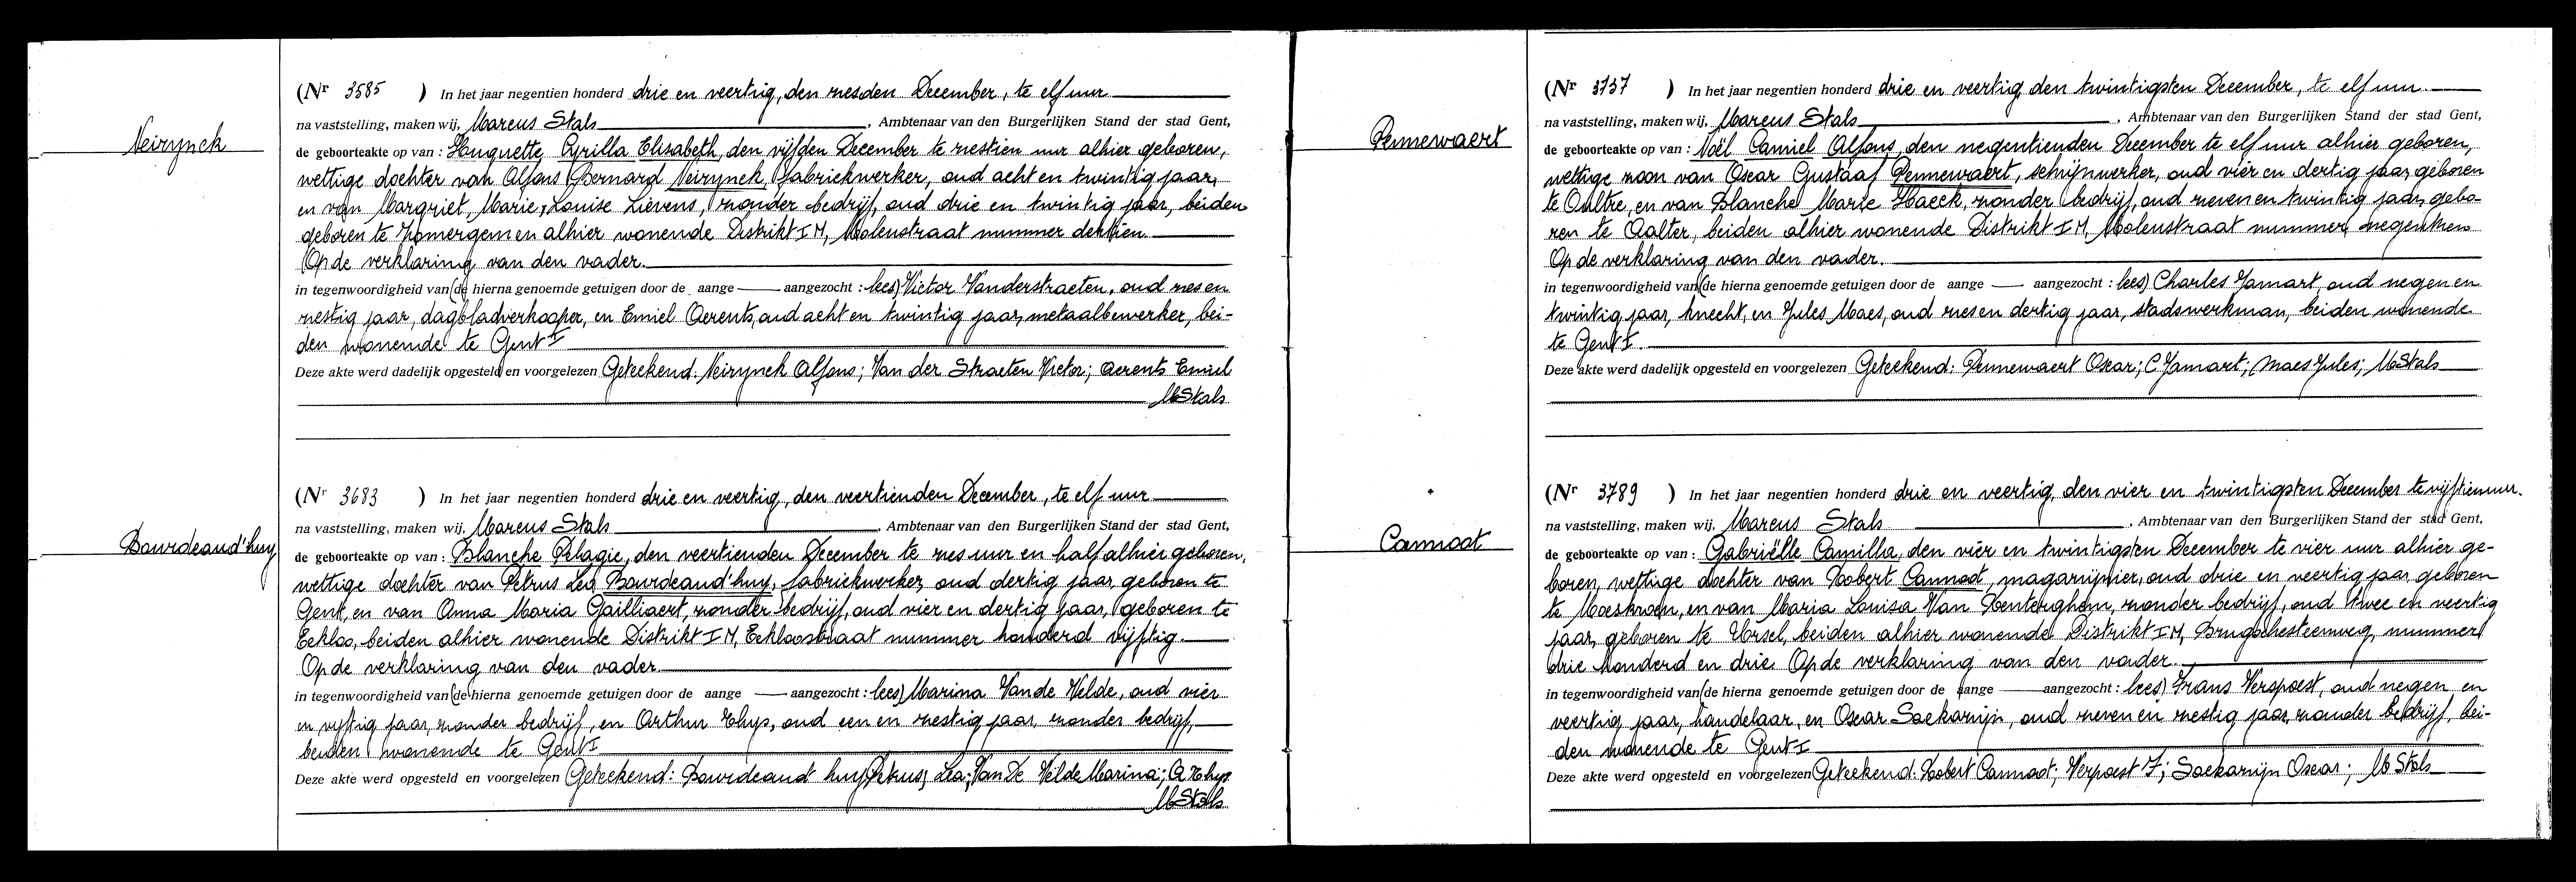 Neirynck
(Nr 3585 ) In het jaar negentien honderd drie en veertig, den zesden December, te elf uur
na vaststelling, maken wij, Marcus Stals, Ambtenaar van den Burgerlijken Stand der stad Gent,
de geboorteakte op van : Huguette Cyrilla Elisabeth, den vijfden December te zestien uur alhier geboren,
wettige dochter van Alfons Bernard Neirynck, fabriekwerker, oud acht en twintig jaar,
en van Margriet Marie Louise Lievens, zonder bedrijf, oud drie en twintig jaar, beiden
geboren te Zomergem en alhier wonende Distrikt I M, Molenstraat nummer dertien
Op de verklaring van den vader.
in tegenwoordigheid van (de hierna genoemde getuigen door de aange — aangezocht : lees) Victor Vanderstraeten, oud zes en
zestig jaar, dagbladverkooper, en Emiel Aerents, oud acht en twintig jaar, metaalbewerker, bei-
den wonende te Gent I
Deze akte werd dadelijk opgesteld en voorgelezen Geteekend: Neirynck Alfons; Van der Straeten Victor; Aerents Emiel
MStals
Bourdeaud'huy
(Nr 3683 ) In het jaar negentien honderd drie en veertig, den veertienden December, te elf uur
na vaststelling, maken wij, Marcus Stals, Ambtenaar van den Burgerlijken Stand der stad Gent,
de geboorteakte op van : Blanche Pelagie, den veertienden December te zes uur en half alhier geboren,
wettige dochter van Petrus Leo Bourdeaud'huy, fabriekwerker, oud dertig jaar, geboren te
Gent, en van Anna Maria Gailliaert, zonder bedrijf, oud vier en dertig jaar, geboren te
Eekloo, beiden alhier wonende Distrikt I M, Eekloostraat nummer honderd vijftig
Op de verklaring van den vader.
in tegenwoordigheid van (de hierna genoemde getuigen door de aange — aangezocht : lees) Marina Van de Velde, oud vier
en vijftig jaar, zonder bedrijf, en Arthur Thys, oud een en zestig jaar, zonder bedrijf,
beiden wonende te Gent I
Deze akte werd opgesteld en voorgelezen Geteekend: Bourdeaud huy Petrus; Leo; Van De Velde Marina; A Thys
MStals
Pennewaert
(Nr 3737 ) In het jaar negentien honderd drie en veertig, den twintigsten December, te elf uur
na vaststelling, maken wij, Marcus Stals, Ambtenaar van den Burgerlijken Stand der stad Gent,
de geboorteakte op van : Noël Camiel Alfons, den negentienden December te elf uur alhier geboren,
wettige zoon van Oscar Gustaaf Pennewaert, schrijnwerker, oud vier en dertig jaar, geboren
te Oultre, en van Blanche Marie Haeck, zonder bedrijf, oud zeven en twintig jaar, gebo-
ren te Aalter, beiden alhier wonende Distrikt I M, Molenstraat nummer negentien
Op de verklaring van den vader.
in tegenwoordigheid van (de hierna genoemde getuigen door de aange — aangezocht : lees) Charles Jamart, oud negen en
twintig jaar, knecht, en Jules Maes, oud zes en dertig jaar, stadswerkman, beiden wonende
te Gent I.
Deze akte werd dadelijk opgesteld en voorgelezen Geteekend: Pennewaert Oscar; C Jamart; Maes Jules; MStals
Cannoot
(Nr 3789 ) In het jaar negentien honderd drie en veertig, den vier en twintigsten December te vijftien uur.
na vaststelling, maken wij, Marcus Stals, Ambtenaar van den Burgerlijken Stand der stad Gent,
de geboorteakte op van : Gabriëlle Camilla, den vier en twintigsten December te vier uur alhier ge-
boren, wettige dochter van Robert Cannoot, magazijnier, oud drie en veertig jaar, geboren
te Moeskroen, en van Maria Louisa Van Renterghem, zonder bedrijf, oud twee en veertig
jaar, geboren te Ursel, beiden alhier wonende Distrikt I M, Brugschesteenweg, nummer
drie honderd en drie. Op de verklaring van den vader.
in tegenwoordigheid van (de hierna genoemde getuigen door de aange — aangezocht : lees) Frans Verspoest, oud negen en
veertig jaar, handelaar, en Oscar Soekarnijn, oud zeven en zestig jaar, zonder bedrijf, bei-
den wonende te Gent I
Deze akte werd opgesteld en voorgelezen Geteekend: Robert Cannoot; Verpoest F; Soekarnijn Oscar; M Stals